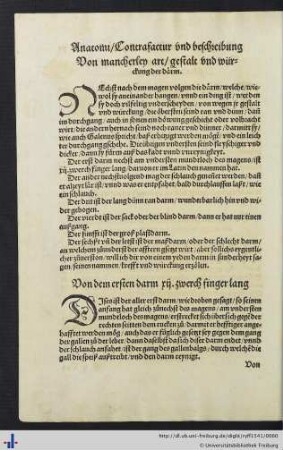 Anatomi/ Contrafactur vnd beschreibung
Von mancherley art/ gestalt vnd wür-
ckung der därm.
NEchst nach dem magen volgen die därm/ welche/ wie-
wol sy aneinander hangen/ vnnd ein ding ist/ werden
sy doch vilfeltig vnderscheyden/ von wegen jr gestalt
vnd würckung/ die obersten seind ran vnd dünn/ daß
im durchgang/ auch in jenen ein dewung geschicht oder volbracht
wirt/ die andern hernach seind noch raner vnd dünner/ damit sy/
wie auch Galenus spricht/ bas
der durchgang geschehe. Die übrigen vndersten seind fleyschiger vnd
dicker/ dann sy
Der erst darm nechst am vndersten mundtloch des magens/ ist
xij. zwerch finger lang/ darvon er im Latin den nammen hat.
Der ander nechst volgend mag der schlauch genennet werden/ daß
er alzeyt lär ist/ vnnd was er entpfahet/ bald durchlauffen laßt/ wie
ein schlauch.
Der drit ist der lang dünn ran darm/ wunderbarlich hin vnd wi-
der gebogen.
Der vierd ist der sack oder der blind darm/ dann er hat nur einen
außgang.
Der fünfft ist der groß
Der sechst vnd der letst ist der maßdarm/ oder der schlecht darm/
an welchem zů underst der affteren gäng wirt/ aber sollichs eygentli-
cher zůuerston/ will ich dir von einem yeden darm in sonderheyt sa-
gen/ seinen nammen/ krefft vnd würckung erzölen.
Von dem ersten darm xij. zwerch finger lang
DIser ist der aller erst darm/ wie droben gesagt/ so seinen
anfang hat gleich zůnechst des magens/ am vndersten
mundtloch des magens/ erstreckt sich über sich gegen der
rechten seitten dem rucken zů/ darmit er hefftiger ange-
hafftet werden mög/ auch das er füglich gesetzt sey gegen dem gang
der gallen zů der leber/ dann daselbst da sich diser darm endet/ vnnd
der schlauch anfahet/ ist der gang des gallenbalgs/ durch welchen die
gall die speiß außtreibt/ vnd den darm reyniget.
Von
http://dl.ub.uni-freiburg.de/diglit/ryff1541/0060
© Universitätsbibliothek Freiburg